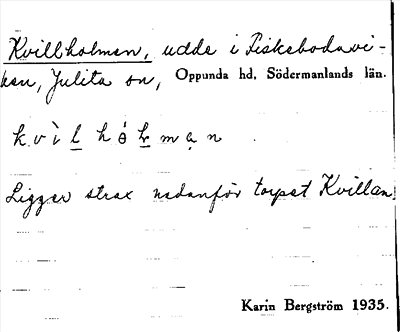 Kvillholmen, udde i Fiskebodavi-
ken, Julita sn, Oppunda hd, Södermanlands län.
k v ì l h ó l m a n
Ligger strax nedanför torpet Kvillan.
Karin Bergström 1935.